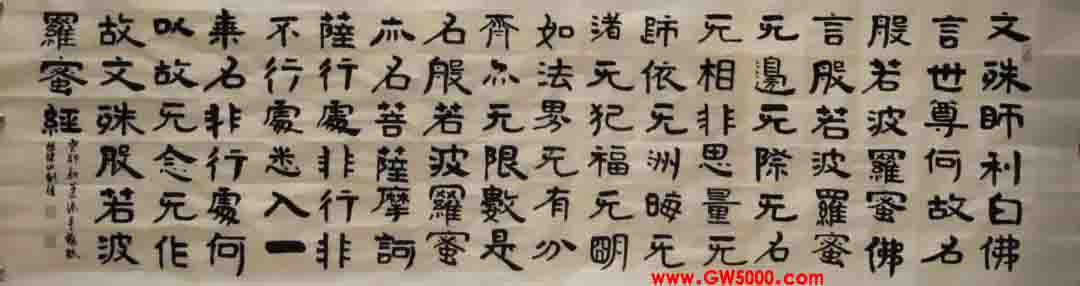 文殊師利白佛
言世尊何故名
般若波羅蜜佛
言般若波羅蜜
无邊无際无名
无相非思量无
歸依无洲晦无
渚无犯福无明
如法界无有分
齊亦无限數是
名般若波羅蜜
亦名菩薩摩訶
薩行處非行非
不行處悉入一
乘名非行處何
以故无念无作
故文殊般若波
羅蜜經
www.GW5000.com